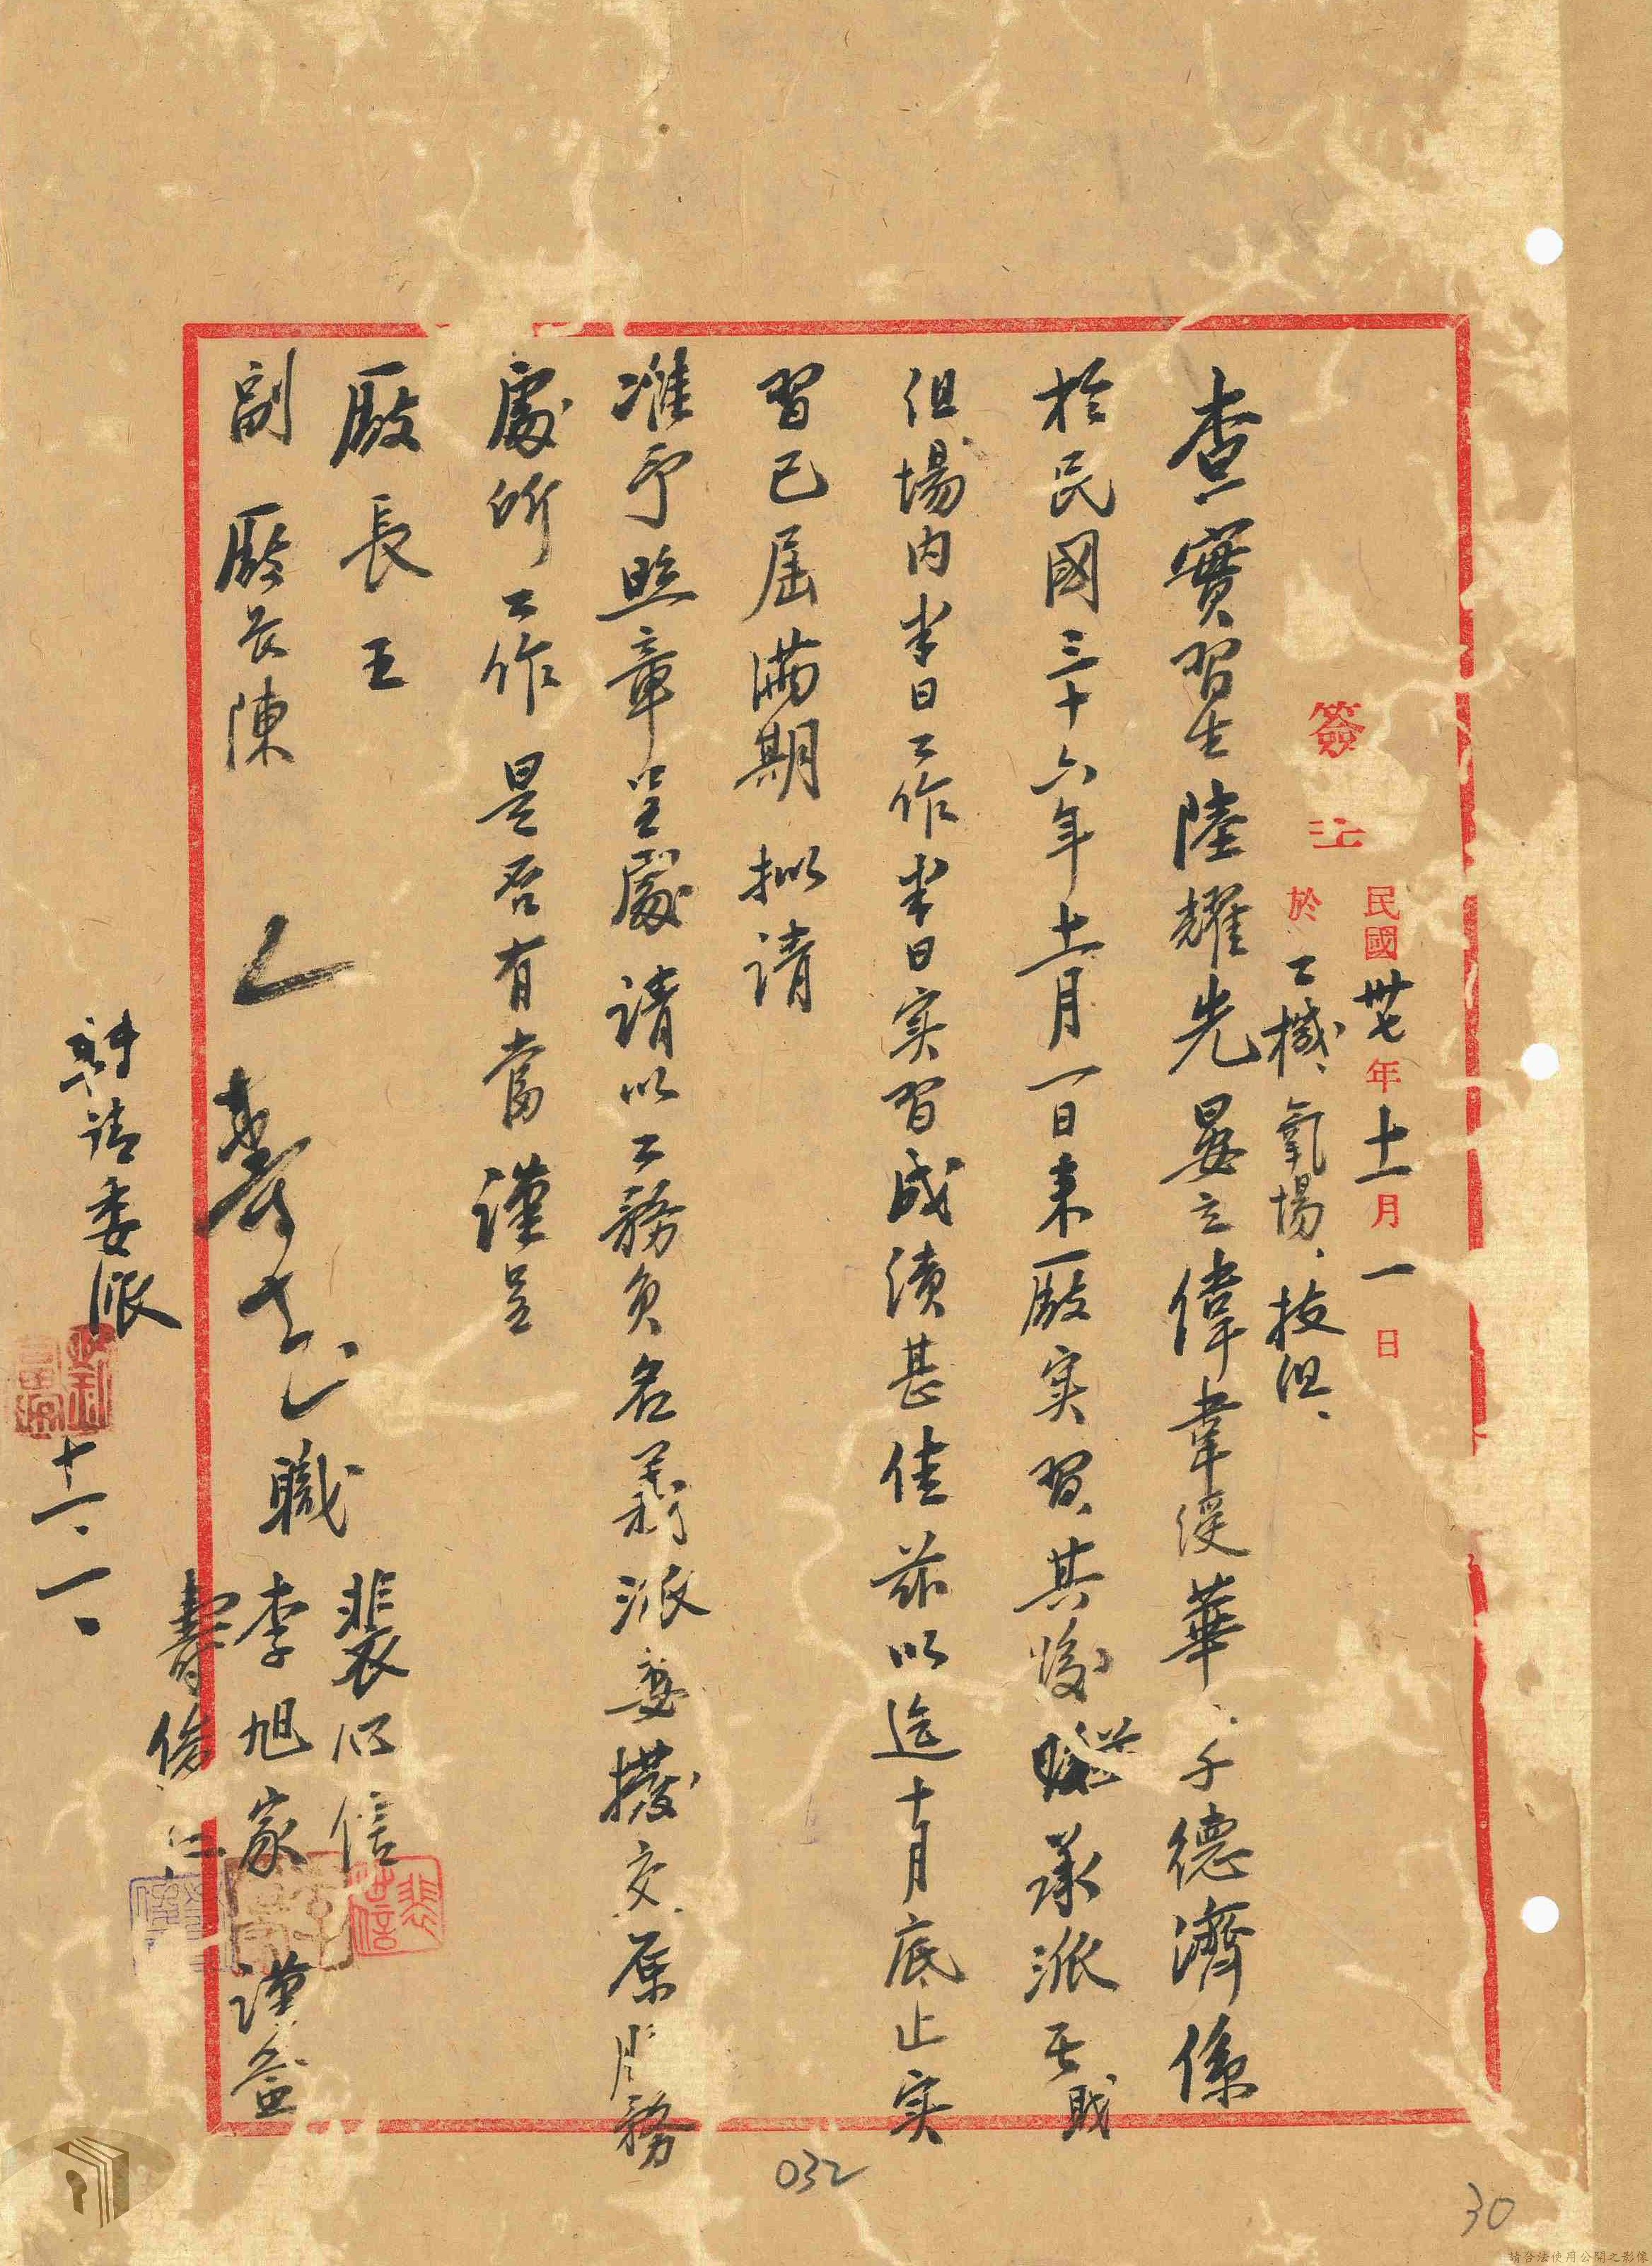 民國卅七年十一月一日
簽 於工機、氧場、技組、
查實習生陸耀先晏立偉韋漢華、于德濟係
於民國三十六年十一月一日來廠实習其後 承派至職
組場内半日工作半日实習成績甚佳茲以迄十月底止实
習已屆滿期拟請
准予照章呈處請以工務員名義派委撥交原服務
處所工作是否有當謹呈
廠長王
副廠長陳
職 裴 信
李旭家 謹簽
轉請委派
十一、一、
032
30
請合法使用公開之影像